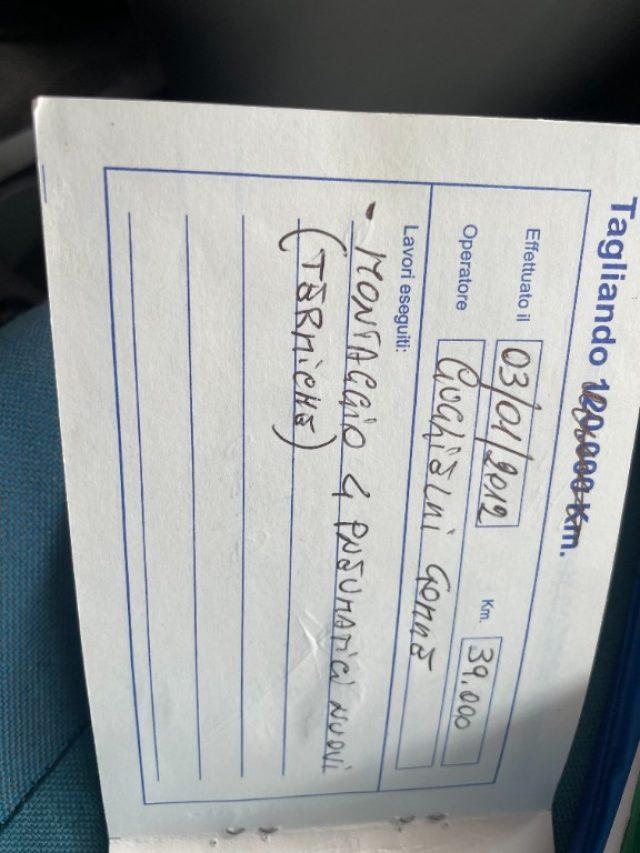 Tagliando 120.000 Km.
Effettuato il 03/01/2012 Km. 39.000
Operatore Guglielmi Gomme
Lavori eseguiti:
• MONTAGGIO 4 PNEUMATICI NUOVI
(TERMICHE)